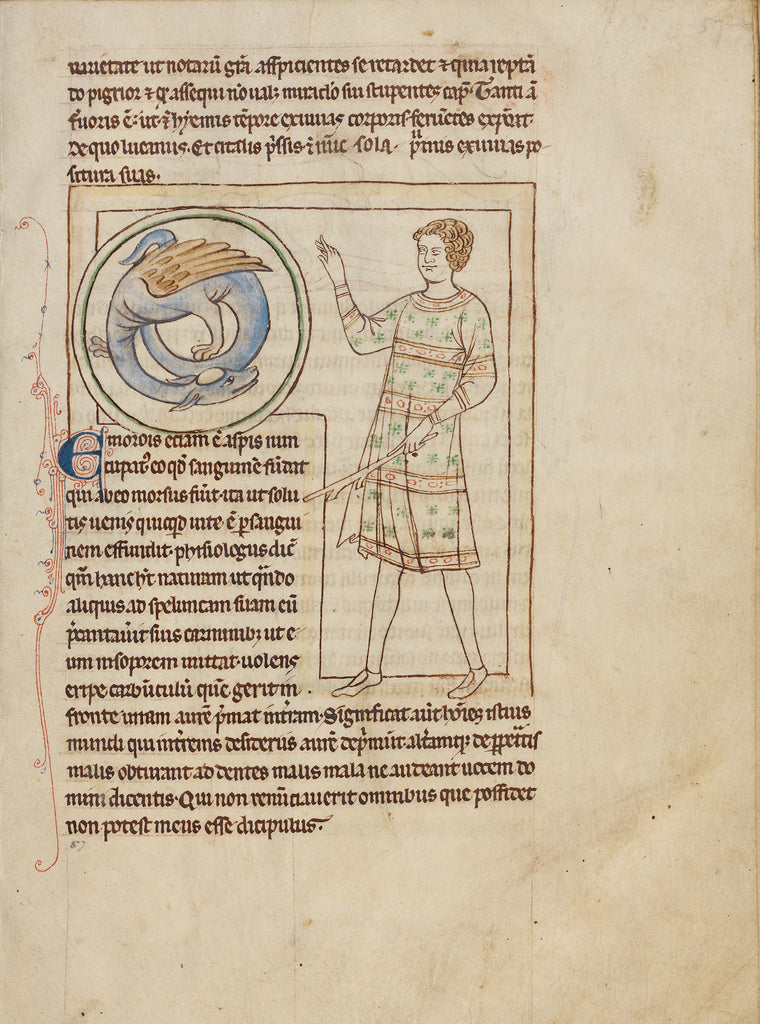 uarietate ut notarū grā asspicientes se retardet ⁊ quia reptā
do pigrior ⁊ q̄s assequi nō ual; miraclo sui stupentes cap̄. Tanti ā
feruoris ē: ut ī hyemis tēpore exuuias corporis feruētes exponit.
De quo lucanus. Et citalis sola p̄mis exuuias po
situra suas.
Emorois etiam ē aspis nun
cupat᷒ eo qd̄ sanguinē fūdat
qui ab eo morsus fuīt. ita ut solu
tis uenis quicqd̄ uite ē p̱ sangui
nem effundit. phisiologus dic̄
qm̄ hanc h̄t naturam ut qn̄do
aliquis ad speluncam suam eū
p̄cantauīt suis carminib; ut e
um in soporem mittat. uolens
eripe carbūculū quē gerit in
fronte unam aurē p̄mat in t̄ram. Significat aūt hōīes istius
mundi qui int̄renis desiderijs aurē dep̄mūt. alt̄amq; de p̱petratis
malis obturant addentes malis mala ne audeant uocem do
mini dicentis. Qui non renūciauerit omnibus que possidet
non potest meus esse dicipulus.